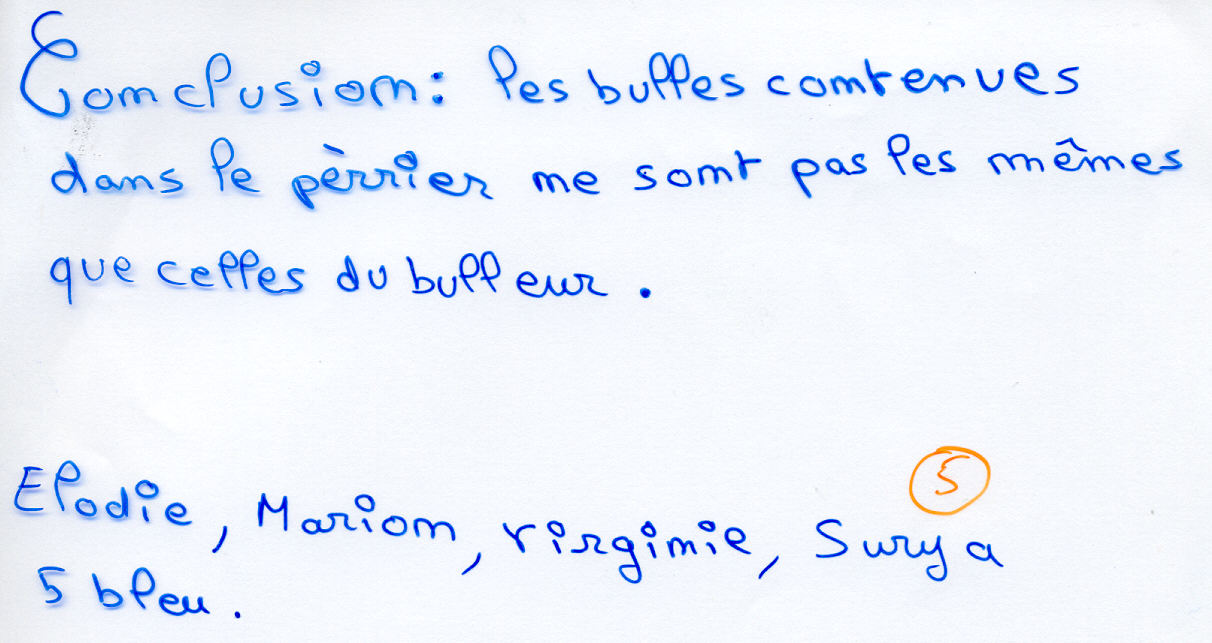 Conclusion: les bulles contenues
dans le pèrrier ne sont pas les mêmes
que celles du bulleur.
5
Elodie, Marion, Virginie, Surya
5 bleu.